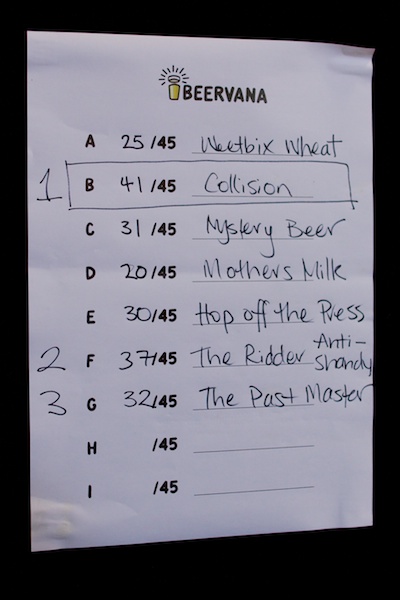 BEERVANA
A 25/45 Weetbix Wheat
1 B 41/45 Collision
C 31/45 Mystery Beer
D 20/45 Mothers Milk
E 30/45 Hop off the Press
2 F 37/45 The Ridder Anti-shandy
3 G 32/45 The Past Master
H /45
I /45